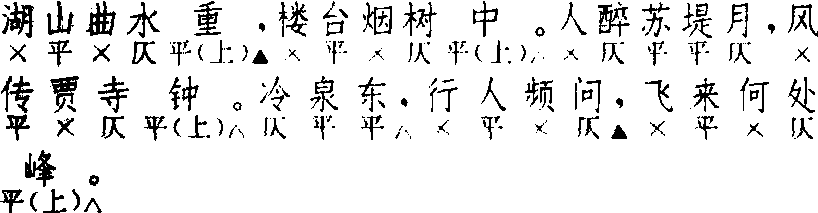 湖山曲水重，楼台烟树中。人醉苏堤月，风
×平×仄平(上)▲×平×仄平(上)△×仄平平仄×
传贾寺钟。冷泉东，行人频问，飞来何处
平×仄平(上)△仄平平△×平×仄▲×平×仄
峰。
平(上)△